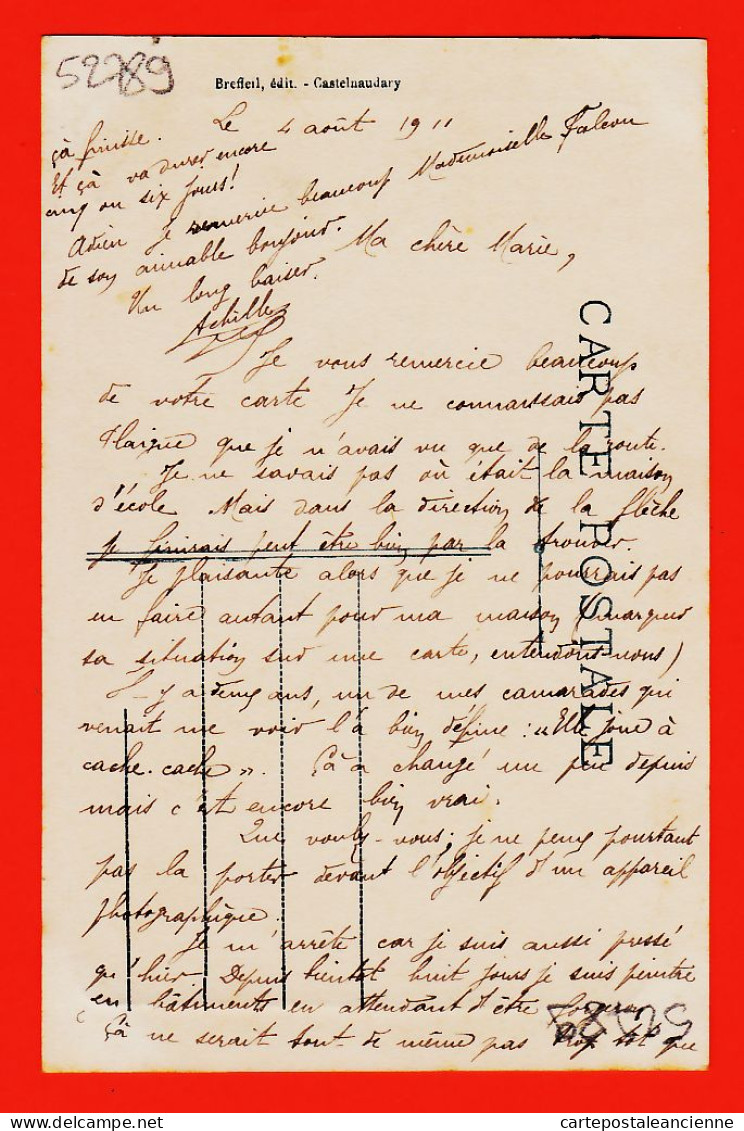 52789
Brefleil, édit. - Castelnaudary
Le 4 août 1911
Ma chère Marie,
Je vous remercie beaucoup
de votre carte Je ne connaissais pas
Plaigne que je n'avais vu que de la route.
Je ne savais pas où était la maison
d'école Mais dans la direction de la flèche
je finirais peut être bien par la trouver.
Je plaisante alors que je ne pourrais pas
en faire autant pour ma maison (marquer
sa situation sur une carte, entendons-nous)
Il y a deux ans, un de mes camarades qui
venait me voir l'a bien définie : "Elle joue à
cache-cache". Çà a changé un peu depuis
mais c'est encore bien vrai.
Que voulez-vous; je ne peux pourtant
pas la porter devant l'objectif d'un appareil
photographique.
Je m'arrête car je suis aussi pressé
qu'hier. Depuis bientôt huit jours je suis peintre
en bâtiments en attendant d'être
Çà ne serait tout de même pas trop tôt que
çà finisse.
Et çà va durer encore
cinq ou six jours!
Adieu Je remercie beaucoup Mademoiselle Falcou
de son aimable bonjour.
Un long baiser.
Achille
CARTE POSTALE
52789
cartepostaleancienne